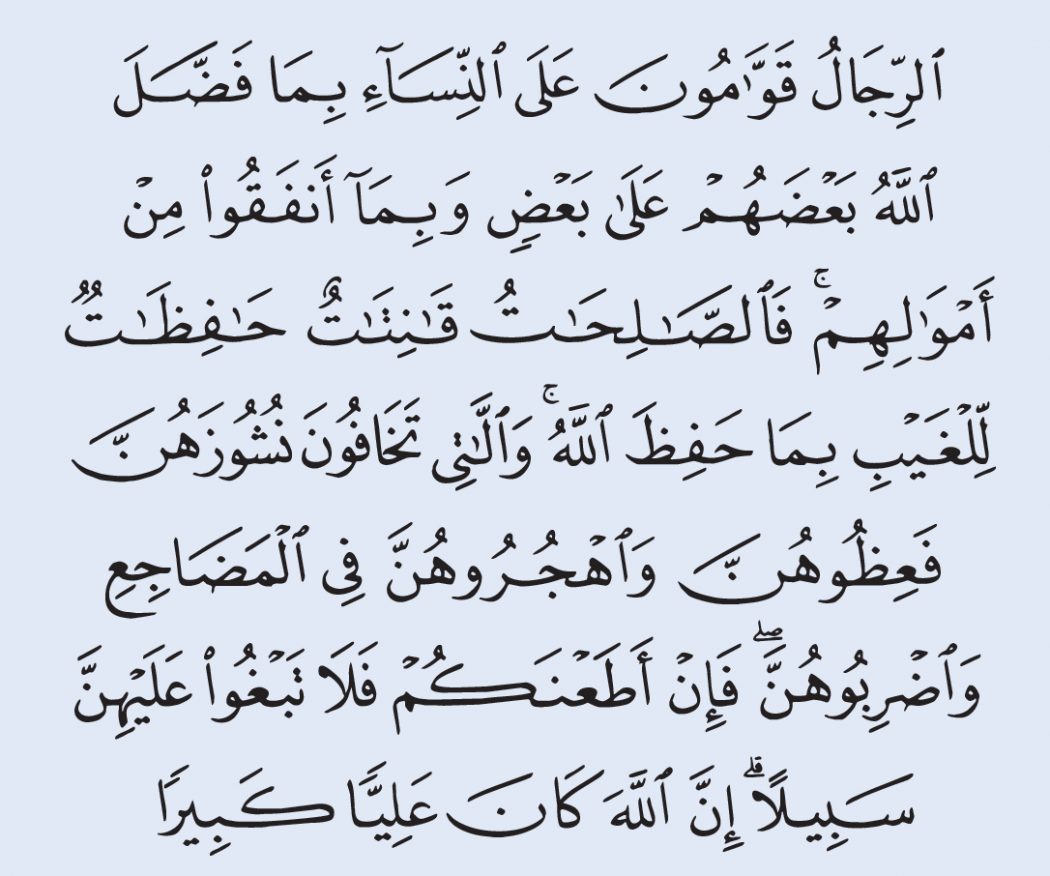 ٱلرِّجَالُ قَوَّٰمُونَ عَلَى ٱلنِّسَآءِ بِمَا فَضَّلَ
ٱللَّهُ بَعْضَهُمْ عَلَىٰ بَعْضٍ وَبِمَآ أَنفَقُوا۟ مِنْ
أَمْوَٰلِهِمْ ۚ فَٱلصَّٰلِحَٰتُ قَٰنِتَٰتٌ حَٰفِظَٰتٌ
لِّلْغَيْبِ بِمَا حَفِظَ ٱللَّهُ ۚ وَٱلَّٰتِى تَخَافُونَ نُشُوزَهُنَّ
فَعِظُوهُنَّ وَٱهْجُرُوهُنَّ فِى ٱلْمَضَاجِعِ
وَٱضْرِبُوهُنَّ ۖ فَإِنْ أَطَعْنَكُمْ فَلَا تَبْغُوا۟ عَلَيْهِنَّ
سَبِيلًا ۗ إِنَّ ٱللَّهَ كَانَ عَلِيًّا كَبِيرًا